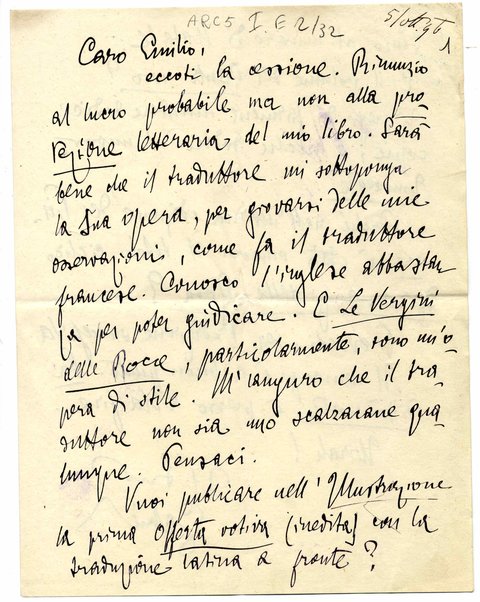 ARC5 I. E 2/32
5/ott. 96
1
Caro Emilio,
eccoti la cessione. Rinunzio
al lucro probabile ma non alla pro
tezione letteraria del mio libro. Sarà
bene che il traduttore mi sottoponga
la sua opera, per giovarsi delle mie
osservazioni, come fa il traduttore
francese. Conosco l'inglese abbastan
za per poter giudicare. E Le Vergini
delle Rocce, particolarmente, sono un'o-
pera di stile. M'auguro che il tra
duttore non sia uno scalzacane qua
lunque. Pensaci.
Vuoi publicare nell'Illustrazione
la prima Offerta votiva (inedita) con la
traduzione latina a fronte?